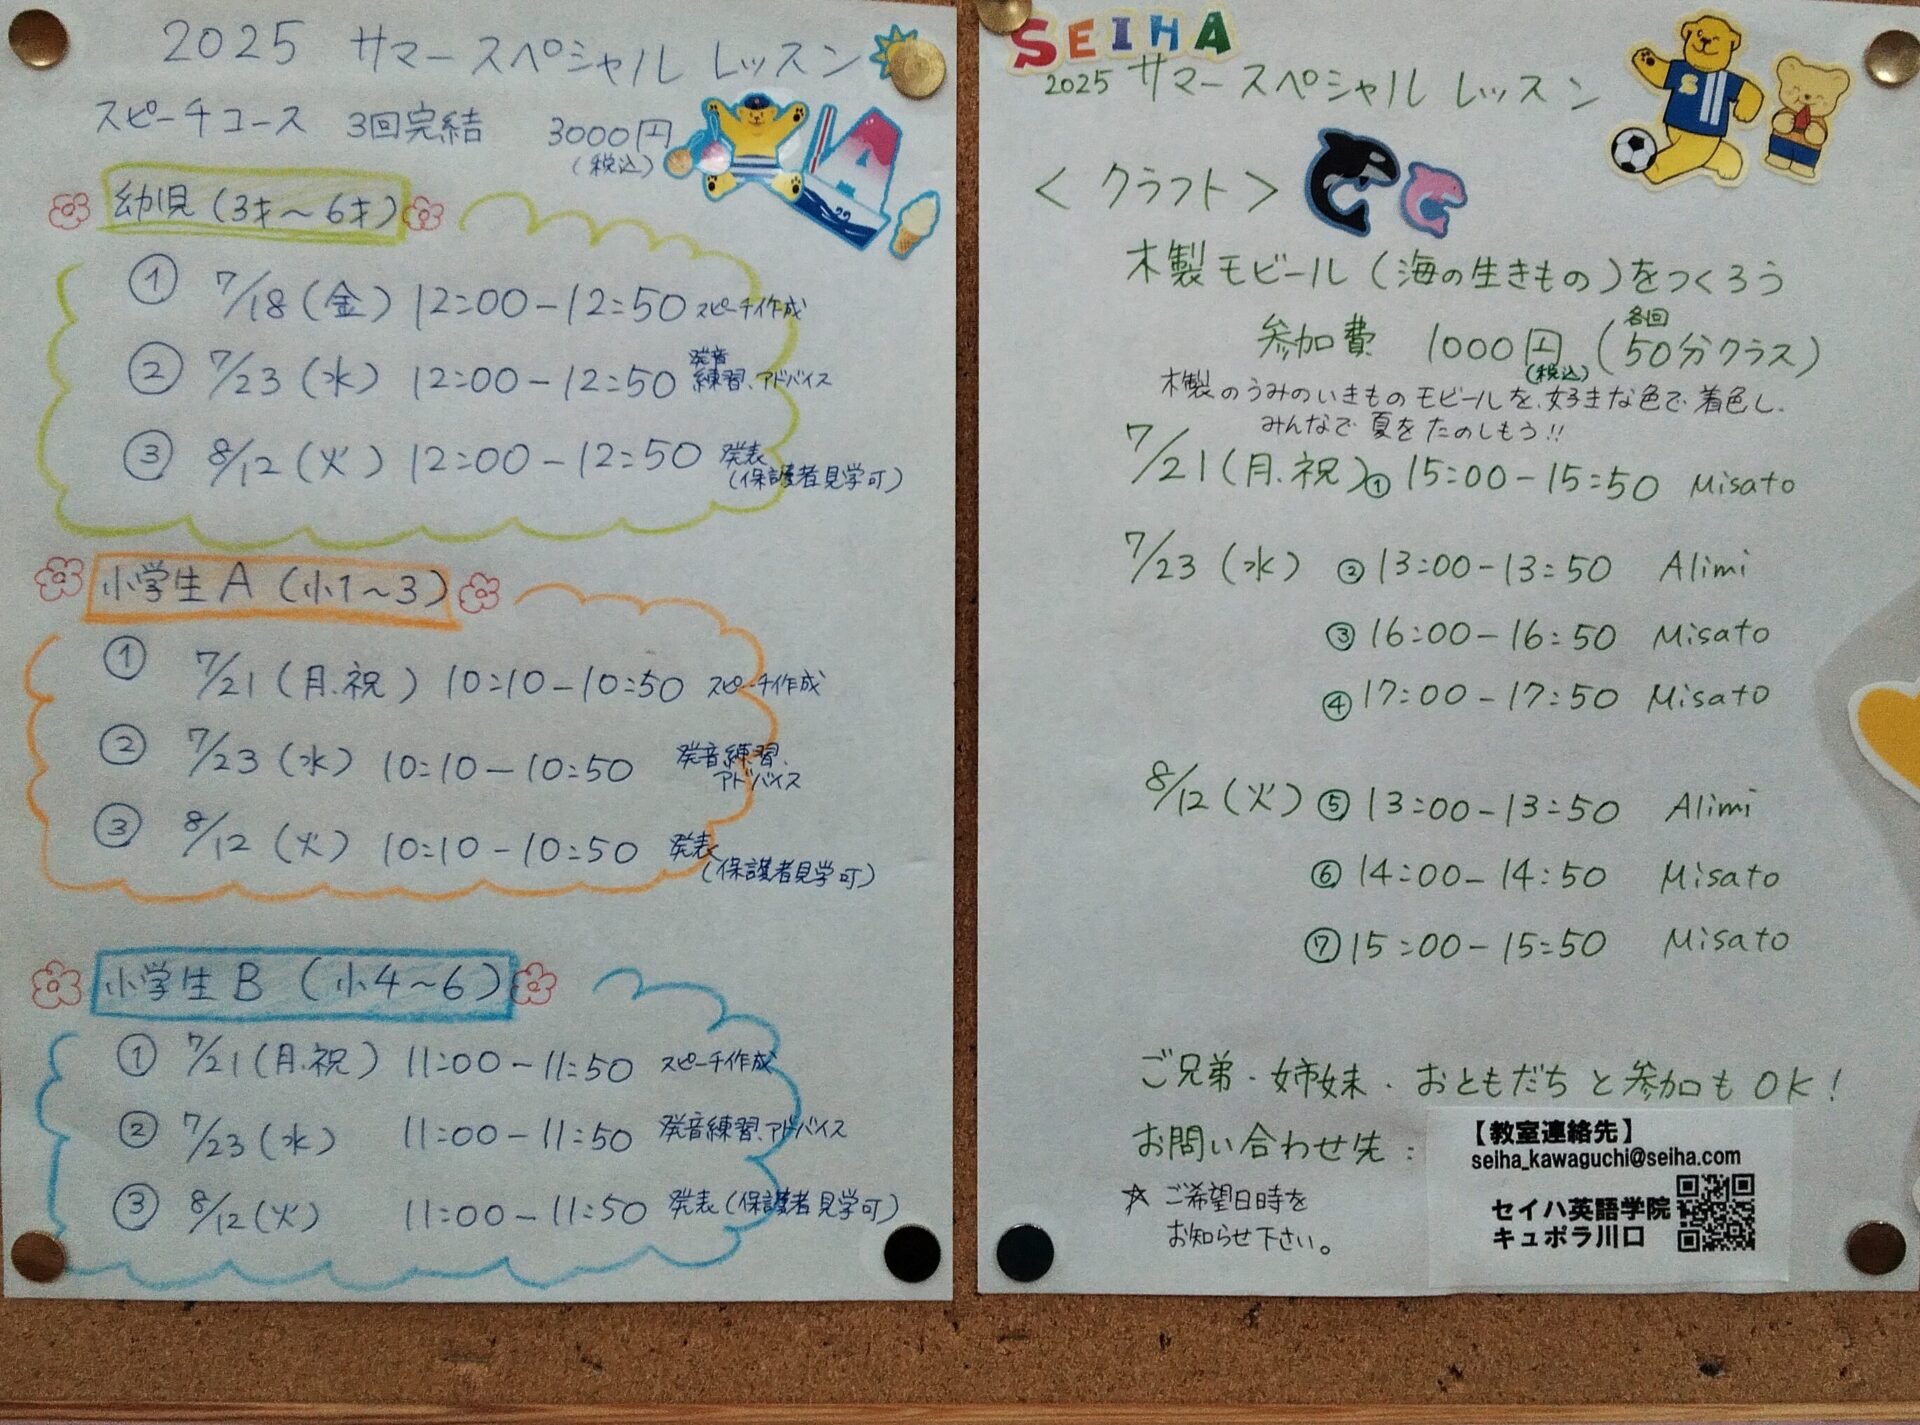 2025 サマースペシャル レッスン
スピーチコース 3回完結 3000円
(税込)
幼児 (3才～6才)
① 7/18 (金) 12:00-12:50 スピーチ作成
② 7/23 (水) 12:00-12:50 発音
練習、アドバイス
③ 8/12 (火) 12:00-12:50 発表
(保護者見学可)
小学生 A (小1～3)
① 7/21 (月.祝) 10:10-10:50 スピーチ作成
② 7/23 (水) 10:10-10:50 発音練習、
アドバイス
③ 8/12 (火) 10:10-10:50 発表
(保護者見学可)
小学生 B (小4～6)
① 7/21 (月.祝) 11:00-11:50 スピーチ作成
② 7/23 (水) 11:00-11:50 発音練習、アドバイス
③ 8/12 (火) 11:00-11:50 発表 (保護者見学可)
SEIHA
2025 サマースペシャル レッスン
<クラフト>
木製モビール (海の生きもの) をつくろう
参加費 1000円 (各回50分クラス)
(税込)
木製のうみのいきものモビールを、好きな色で着色し、
みんなで夏をたのしもう!!
7/21 (月.祝) ① 15:00-15:50 Misato
7/23 (水) ② 13:00-13:50 Alimi
③ 16:00-16:50 Misato
④ 17:00-17:50 Misato
8/12 (火) ⑤ 13:00-13:50 Alimi
⑥ 14:00-14:50 Misato
⑦ 15:00-15:50 Misato
ご兄弟・姉妹・おともだちと参加もOK!
お問い合わせ先:
【教室連絡先】
seiha_kawaguchi@seiha.com
セイハ英語学院
キュポラ川口
☆ ご希望日時を
お知らせ下さい。